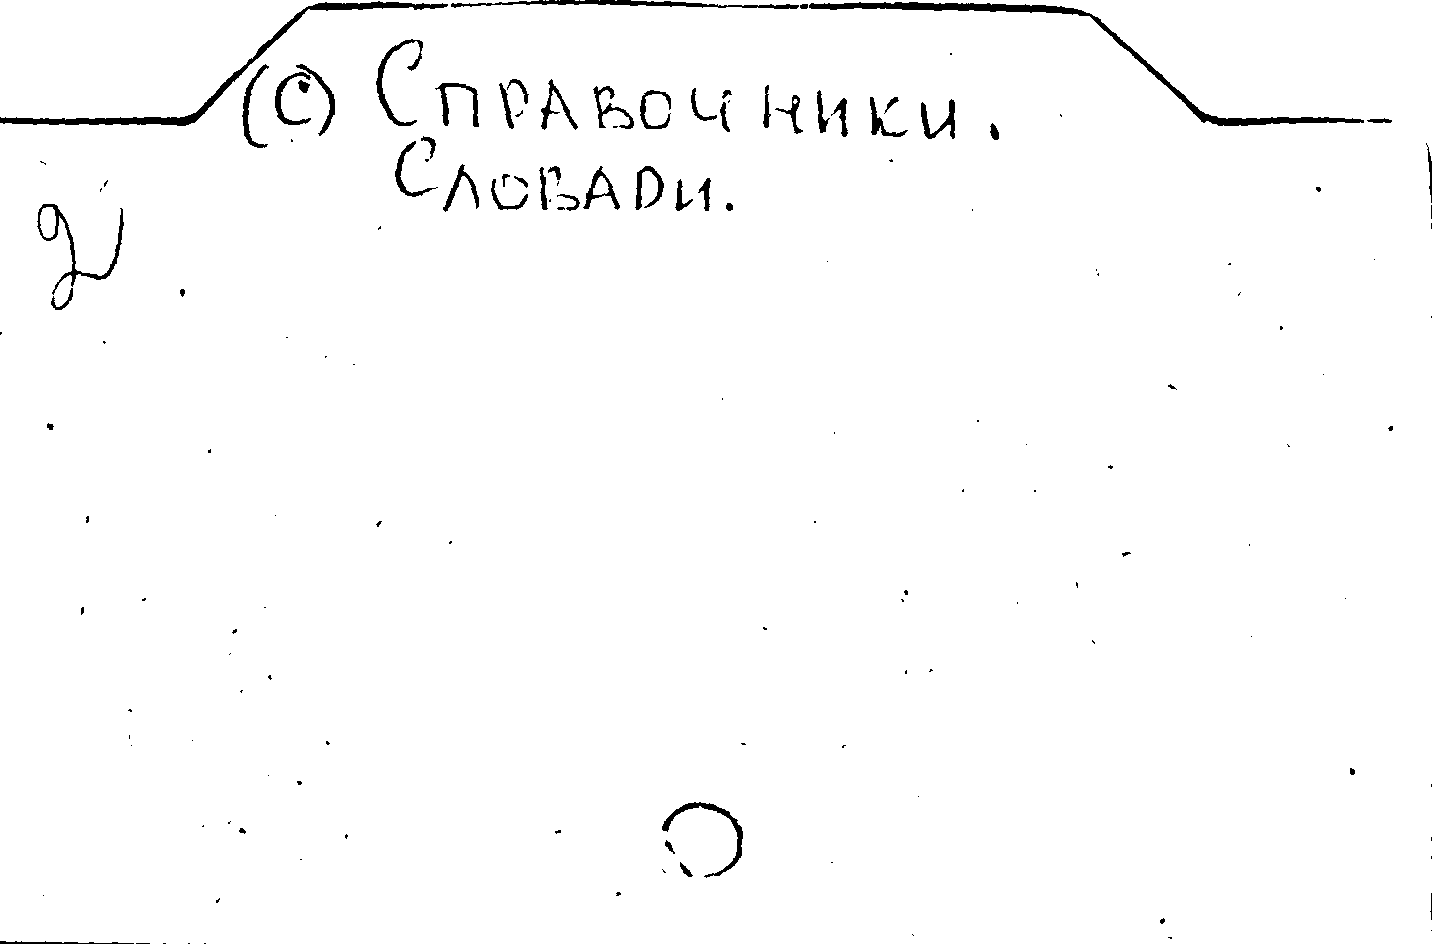 (С) Справочники.
Словари.
2